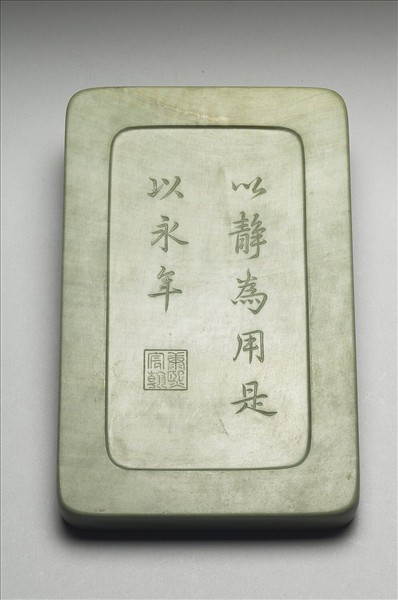 以靜為用是
以永年
康熙
宸翰